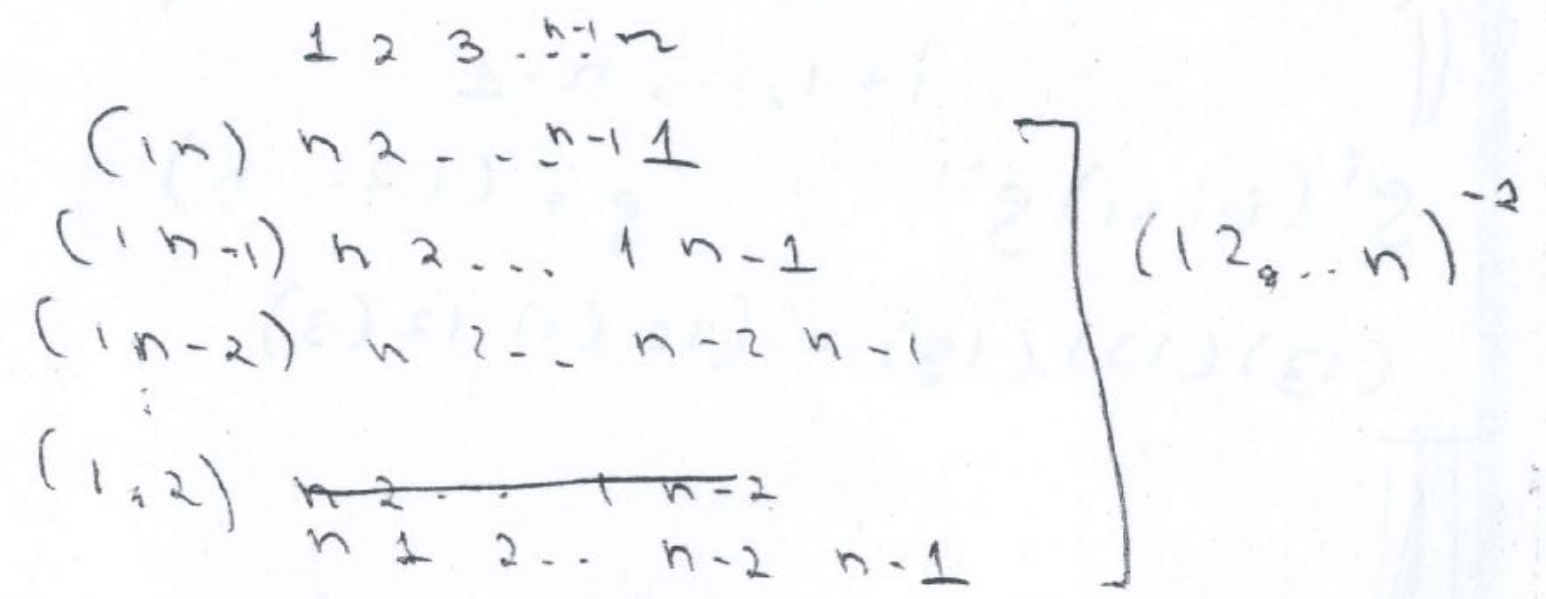 1 2 3 ... n-1 n
(1 n) n 2 - . . n-1 1
(1 n-1) n 2 ... 1 n-1
(1 n-2) n 2 - . . n-2 n-1
⋮
(1, 2) n 2 . . 1 n-2
n 1 2 . . n-2 n-1
] (1 2 ... n)^-2